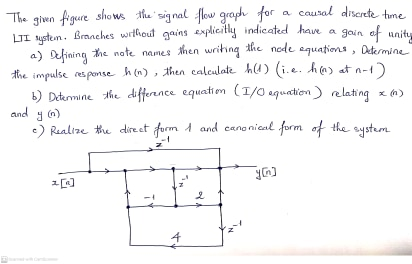 The given figure shows the signal flow graph for a causal discrete-time
LTI system. Branches without gains explicitly indicated have a gain of unity
a) Defining the note names then writing the node equations, Determine
the impulse response h(n), then calculate h(1) (i.e. h(n) at n=1)
b) Determine the difference equation (I/O equation) relating x(n)
and y(n)
c) Realize the direct form 1 and canonical form of the system
z⁻¹
x[n]
y[n]
z⁻¹
-1
2
z⁻¹
4